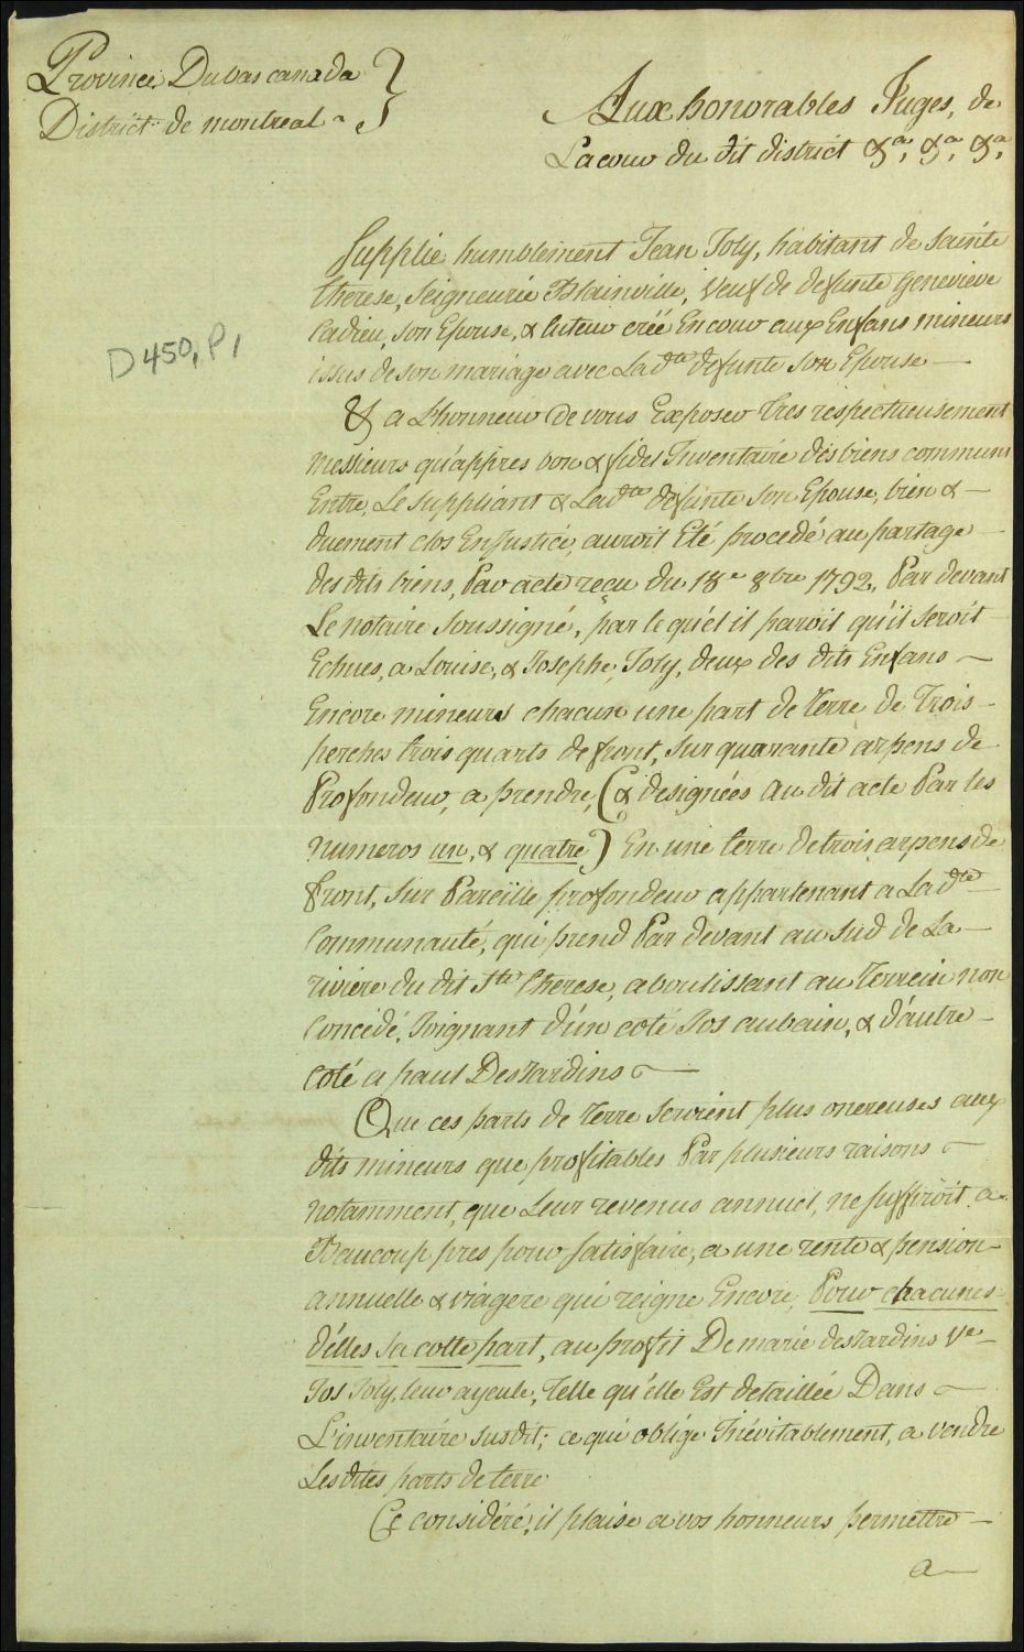 Province Du bas canada
District de montreal
Aux honorables Juges, de
La cour du dit district &a, &a, &a,
D450, P1
Supplie humblement Jean Joly, habitant de Sainte
therese, Seigneurie Blainville, Veuf de defunte Genevieve
Cadieu, son Epouse, & tuteur créé En cour aux Enfans mineurs
issus de son mariage avec La dte defunte son Epouse —
& a L'honneur de vous Exposer tres respectueusement
Messieurs qu'appres bon & fidel Inventaire des biens communs
Entre, Le Suppliant & La dte defunte son Epouse, bien & —
duement clos En Justice, auroit Eté procedé au partage
des dits biens, Par acte reçu du 18e 8bre 1792, Par devant
Le notaire Soussigné, par le quél il paroit qu'il seroit
Echues, a Louise, & Josephe, Joly, deux des dits Enfans —
Encore mineurs chacun une part de terre de Trois —
perches trois quarts de front, Sur quarante arpens de
Profondeur, a prendre, (& designées au dit acte Par les
numeros un, & quatre) En une terre de trois arpens de
front, Sur Pareille profondeur appartenant a La dte
Communauté, qui prend Par devant au Sud de La —
riviere du dit Ste Therese, aboutissant au Terrein non
Concédé, Joignant d'un coté Jos aubain, & d'autre —
coté a paul DesJardins —
Que ces parts de Terre seroient plus onereuses aux
dits mineurs que profitables Par plusieurs raisons
notamment, que Leur revenus annuel, ne suffiroit a
Beaucoup pres pour satisfaire, a une rente & pension —
annuelle & viagere qui reigne Encore, Pour chacunes
d'élles sa cotte part, au profit De marie desJardins Ve
Jos Joly, leur ayeule, Telle qu'elle Est detaillée Dans
L'inventaire susdit; ce qui oblige Inévitablement, a vendre
Les dites parts de terre
Ce considéré, il plaise a vos honneurs permettre —
a —